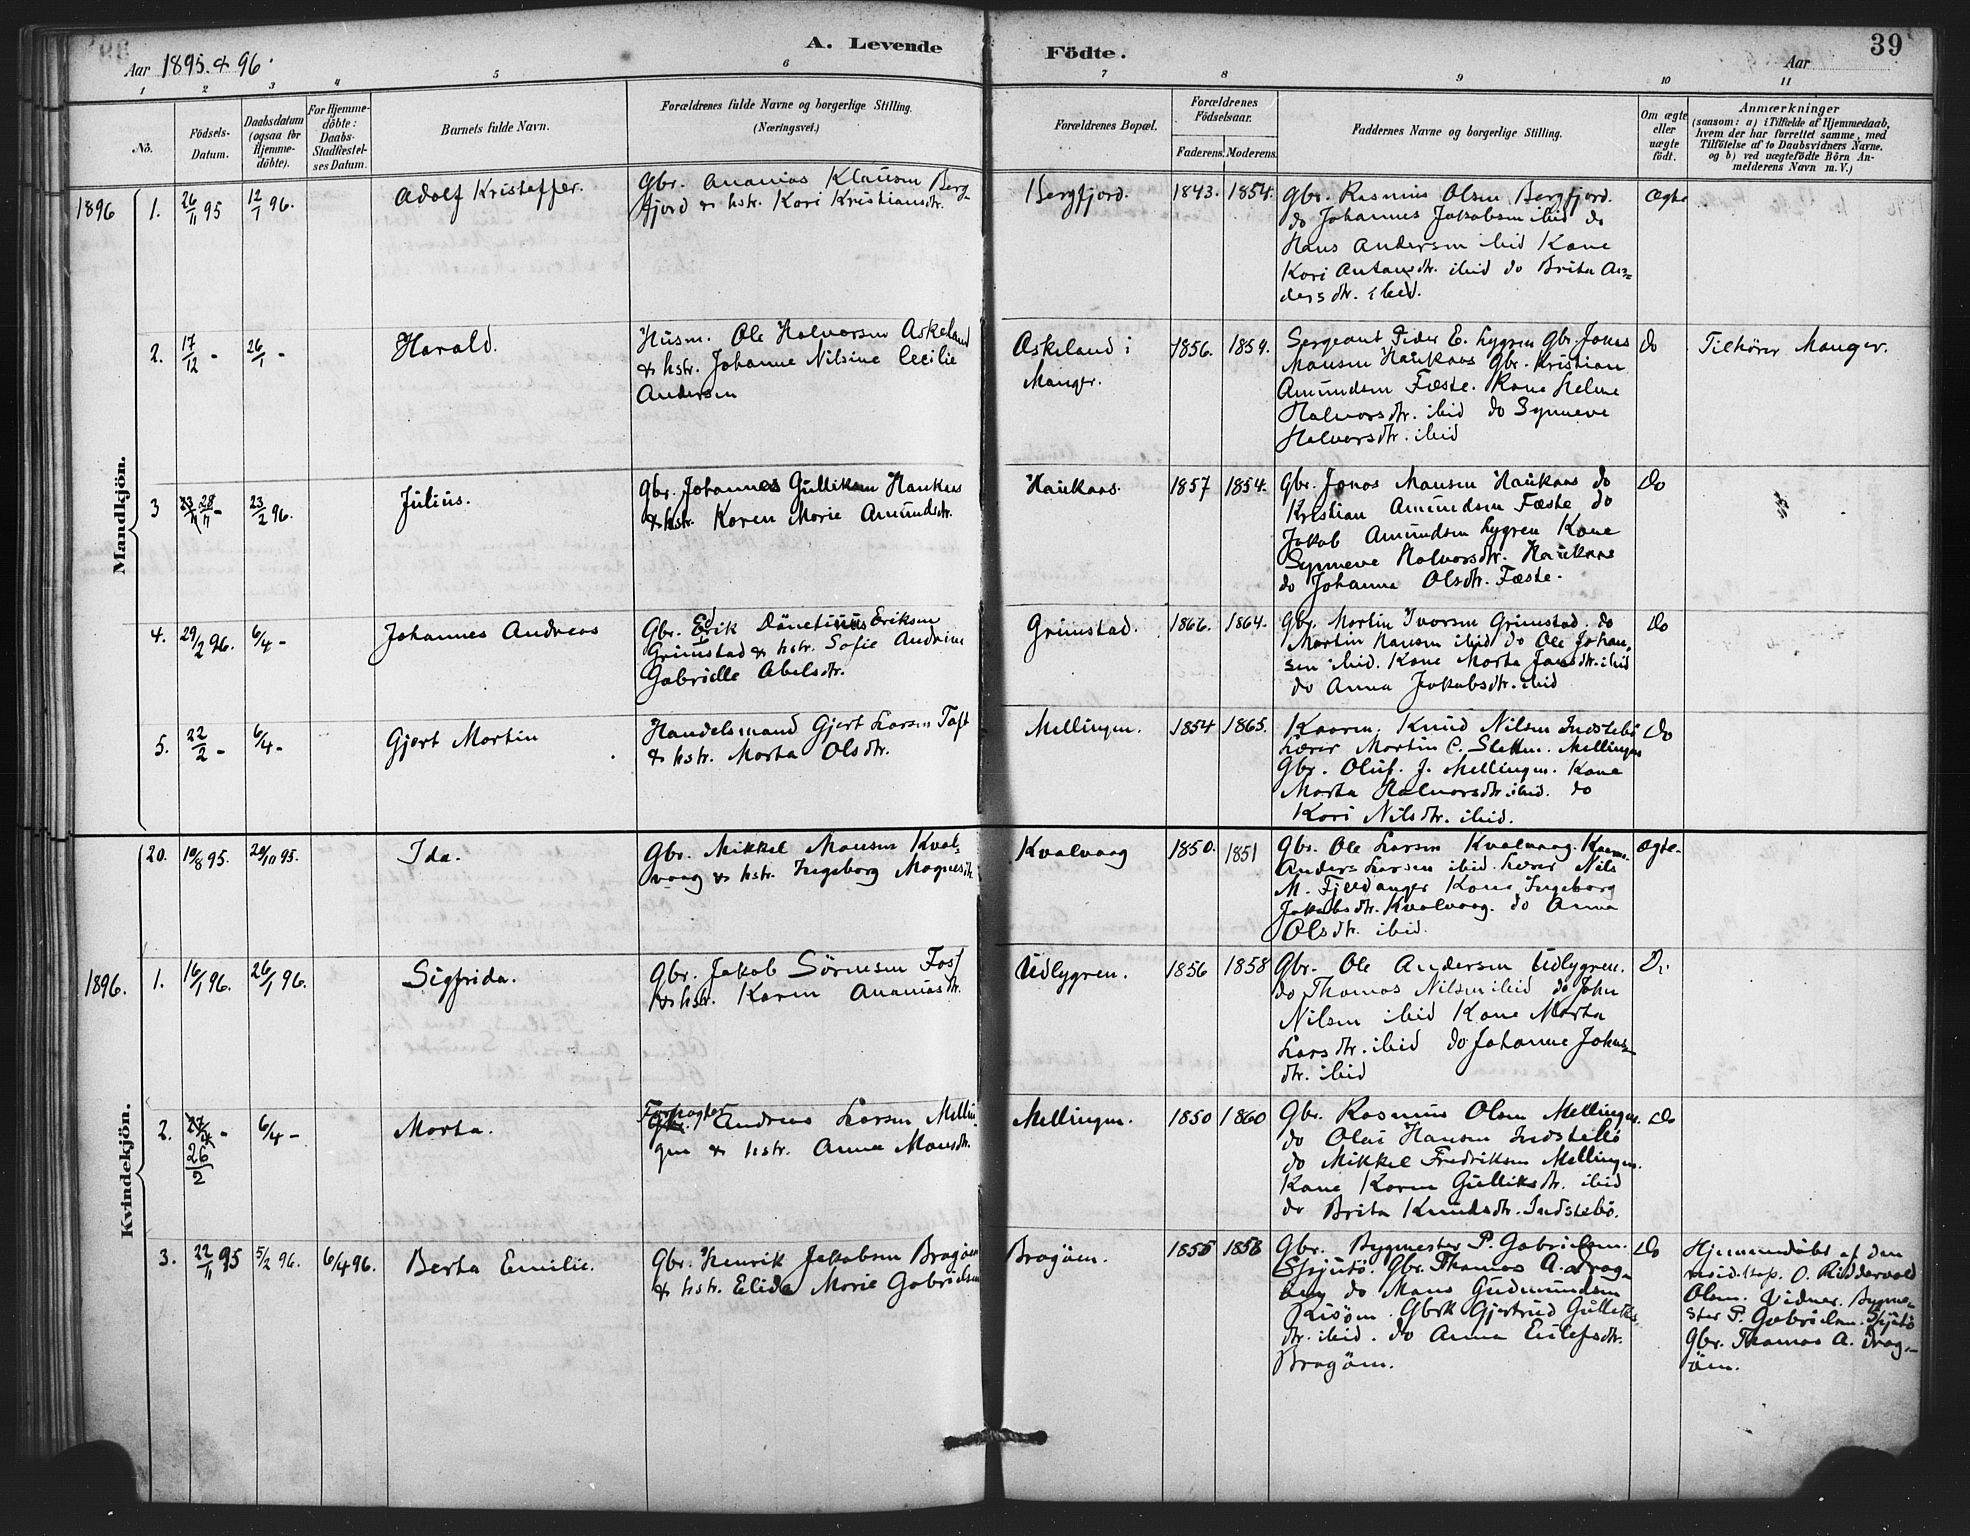 Aar 1895 & 96.
A. Levende Födte.
39
Aar
1 2 3 4 5 6 7 8 9 10 11
No.
Födsels-Datum.
Daabsdatum (ogsaa for Hjemme-döbte).
For Hjemme-döbte: Daabs-Stadfæstel-ses Datum.
Barnets fulde Navn.
Forældrenes fulde Navne og borgerlige Stilling.
(Næringsvei.)
Forældrenes Bopæl.
Forældrenes Födselsaar.
Faderens. Moderens.
Faddernes Navne og borgerlige Stilling.
Om ægte eller uægte födt.
Anmærkninger
(saasom: a) i Tilfælde af Hjemmedaab,
hvem der har forrettet samme, med
Tilföielse af to Daabsvidners Navne.
og b) ved uægtefödte Börn An-
melderens Navn m. V.)
Mandkjön.
1896 1. 26/11 95 12/1 96. Adolf Kristoffer.
Gbr. Ananias Klausen Berg-
fjord & hstr. Kari Kristiansdtr.
Bergfjord. 1843. 1854.
Gbr. Rasmus Olsen Bergfjord.
do Johannes Jakobsen ibid do
Hans Andersen ibid Kone
Kari Antonsdtr. ibid do Brita An-
dersdtr. ibid.
Ægte
2. 17/12 - 26/1 - Harald.
Husm. Ole Halvorsen Askeland
& hstr. Johanne Nilsine Cecilie
Andersen
Askeland i
Manger.
1856. 1859.
Sergeant Peder E. Lygren Gbr. Jonas
Monsen Haukaas Gbr. Kristian
Amundsen Fæste. Kone Helene
Halvorsdtr. ibid do Synneve
Halvorsdtr. ibid
do
Tilhörer Manger.
3 23/11 28/11 - 23/2 96. Julius.
Gbr. Johannes Gulliksen Haukaas
& hstr. Karen Marie Amundsdtr.
Haukaas. 1857 1854.
Gbr. Jonas Monsen Haukaas do
Kristian Amundsen Fæste do
Jakob Amundsen Lygren Kone
Synneve Halvorsdtr. Haukaas
do Johanna Olsdtr. Fæste.
do
4. 29/2 96. 6/4 - Johannes Andreas
Gbr. Erik Eriksen
Grimstad & hstr. Sofie Andrine
Gabrielle Abelsdtr.
Grimstad. 1866. 1864.
Gbr. Martin Ivorsen Grimstad. do
Martin Hansen ibid do Ole Johan-
sen ibid. Kone Marta Jansdtr. ibid
do Anna Jakobsdtr. ibid
do
5. 22/2 - 6/4 - Gjert Martin
Handelsmand Gjert Larsen Toft
& hstr. Marta Olsdtr.
Mellingen. 1854 1865.
Knud Nilsen Indstebö
Lærer Martin C. Sletten. Mellingen
Gbr. Oluf. J. Mellingen. Kone
Marta Halvorsdtr. ibid. do
Kari Nilsdtr. ibid.
do
Kvindekjön.
20. 10/8 95. 20/10 95. Ida.
Gbr. Mikkel Monsen Kval-
vaag & hstr. Ingeborg Magnesdtr.
Kvalvaag 1850. 1851
Gbr. Ole Larsen Kvalvaag.
Anders Larsen ibid. Lærer Nils
M. Fjeldanger Kone Ingeborg
Jakobsdtr. Kvalvaag. do Anna
Olsdtr. ibid.
ægte.
1896. 1. 16/1 96. 26/1 96. Sigfrida.
Gbr. Jakob Sörensen Fosf
& hstr. Karen Ananiasdtr.
Udlygren. 1856 1858
Gbr. Ole Andersen Udlygren.
do Thomas Nilsen ibid do John
Nilsen ibid Kone Marta
Larsdtr. ibid do Johanne Johns-
dtr. ibid
Do
2. 26/2 - 6/4 - Marta.
Forpagter Andreas Larsen Mellin-
gen & hstr. Anna Monsdtr.
Mellingen. 1850 1860
Gbr. Rasmus Olsen Mellingen.
do Olai Hansen Indstebö
do Mikkel Fredriksen Mellingen.
Kone Karen Gulliksdtr. ibid
do Brita Knudsdtr. Indstebö.
do
3. 22/11 95 5/2 96. 6/4 96. Berta Emilie.
Gbr. Henrik Jakobsen Bragöen
& hstr. Elida Marie Gabrielsen
Bragöen. 1855 1858
Gbr. Bygmester P. Gabrielsen.
Spjutö. Gbr. Thomas A. Drag-
öen do Mons Gudmundsen
Risöen. Gbrk Gjertrud Gulliks
dtr. ibid. do Anna Eilefsdtr.
Bragöen.
do
Hjemmedöbt af den
resid. Kap. O. Riddervold
Olsen. Vidner. Bygme-
ster P. Gabrielsen. Spjutö
Gbr. Thomas A. Drag-
öen.